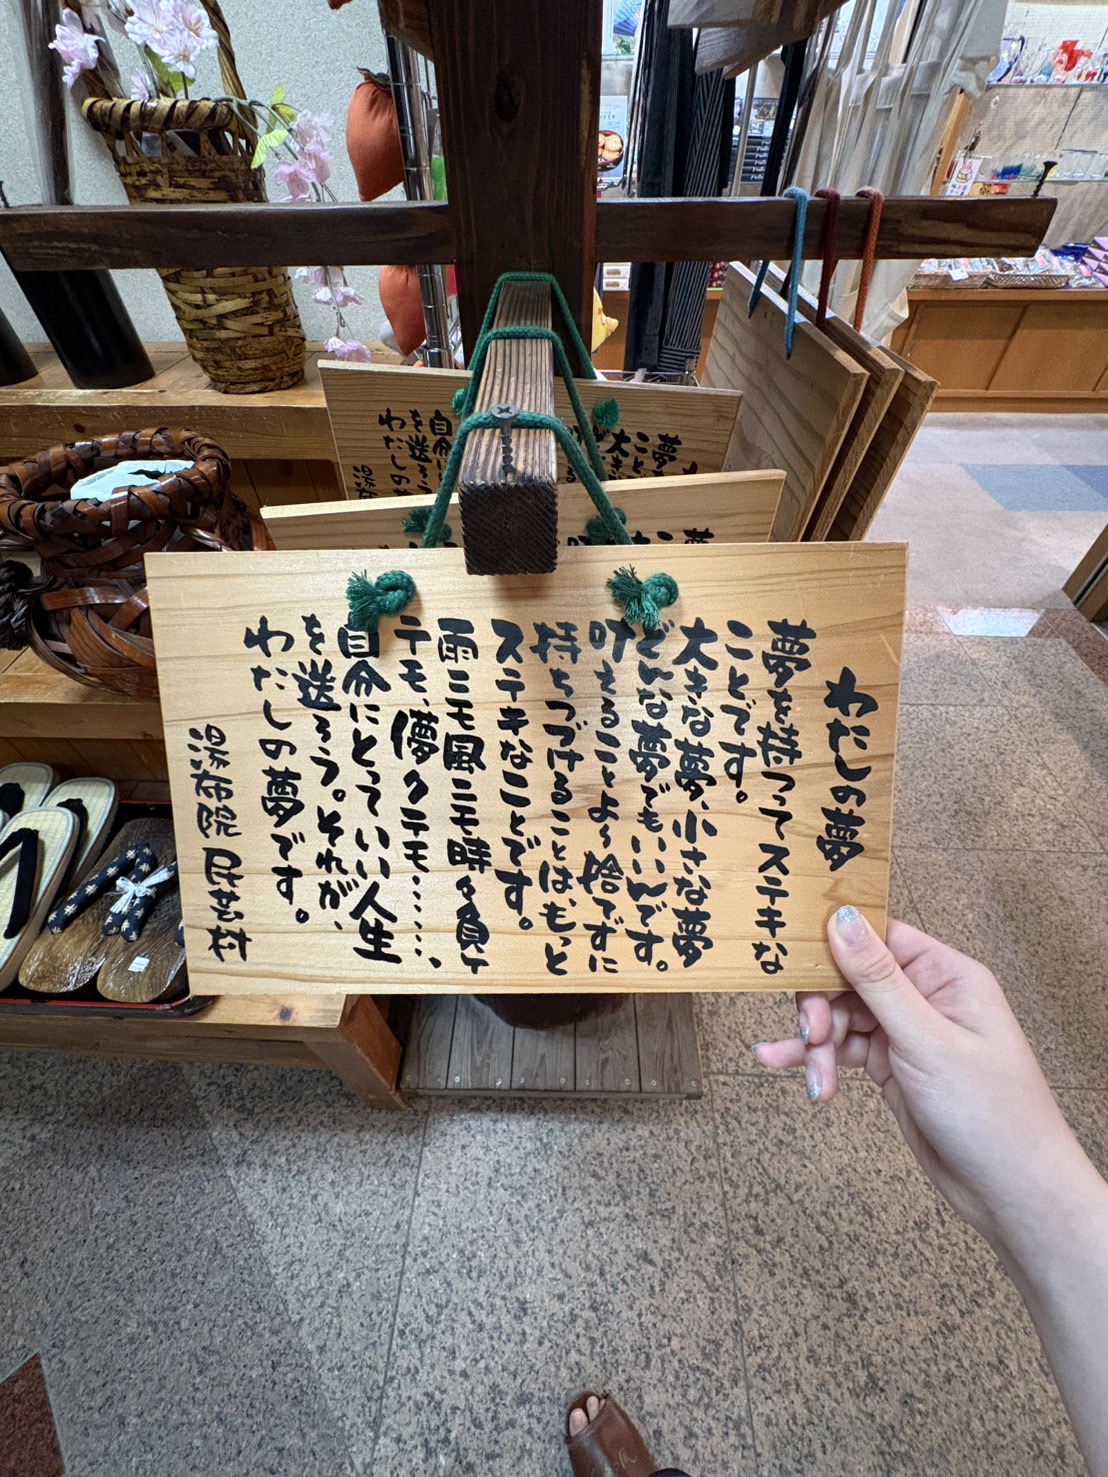 わたしの夢
夢を持つってステキな
ことです。
大きな夢、小さな夢
どんな夢でもいいんです。
叶えることよ〜捨てずに
持ちつづけることは、もっと
ステキなことです。
雨ニモ風ニモ時々負ケ
テモ、儚クテモ……、
自分にとっていい人生
を送ろう。それが、
わたしの夢です。
湯布院 民芸村
自分に
を送ろう
わたしの
湯布
夢
こと
大き
夢
こ